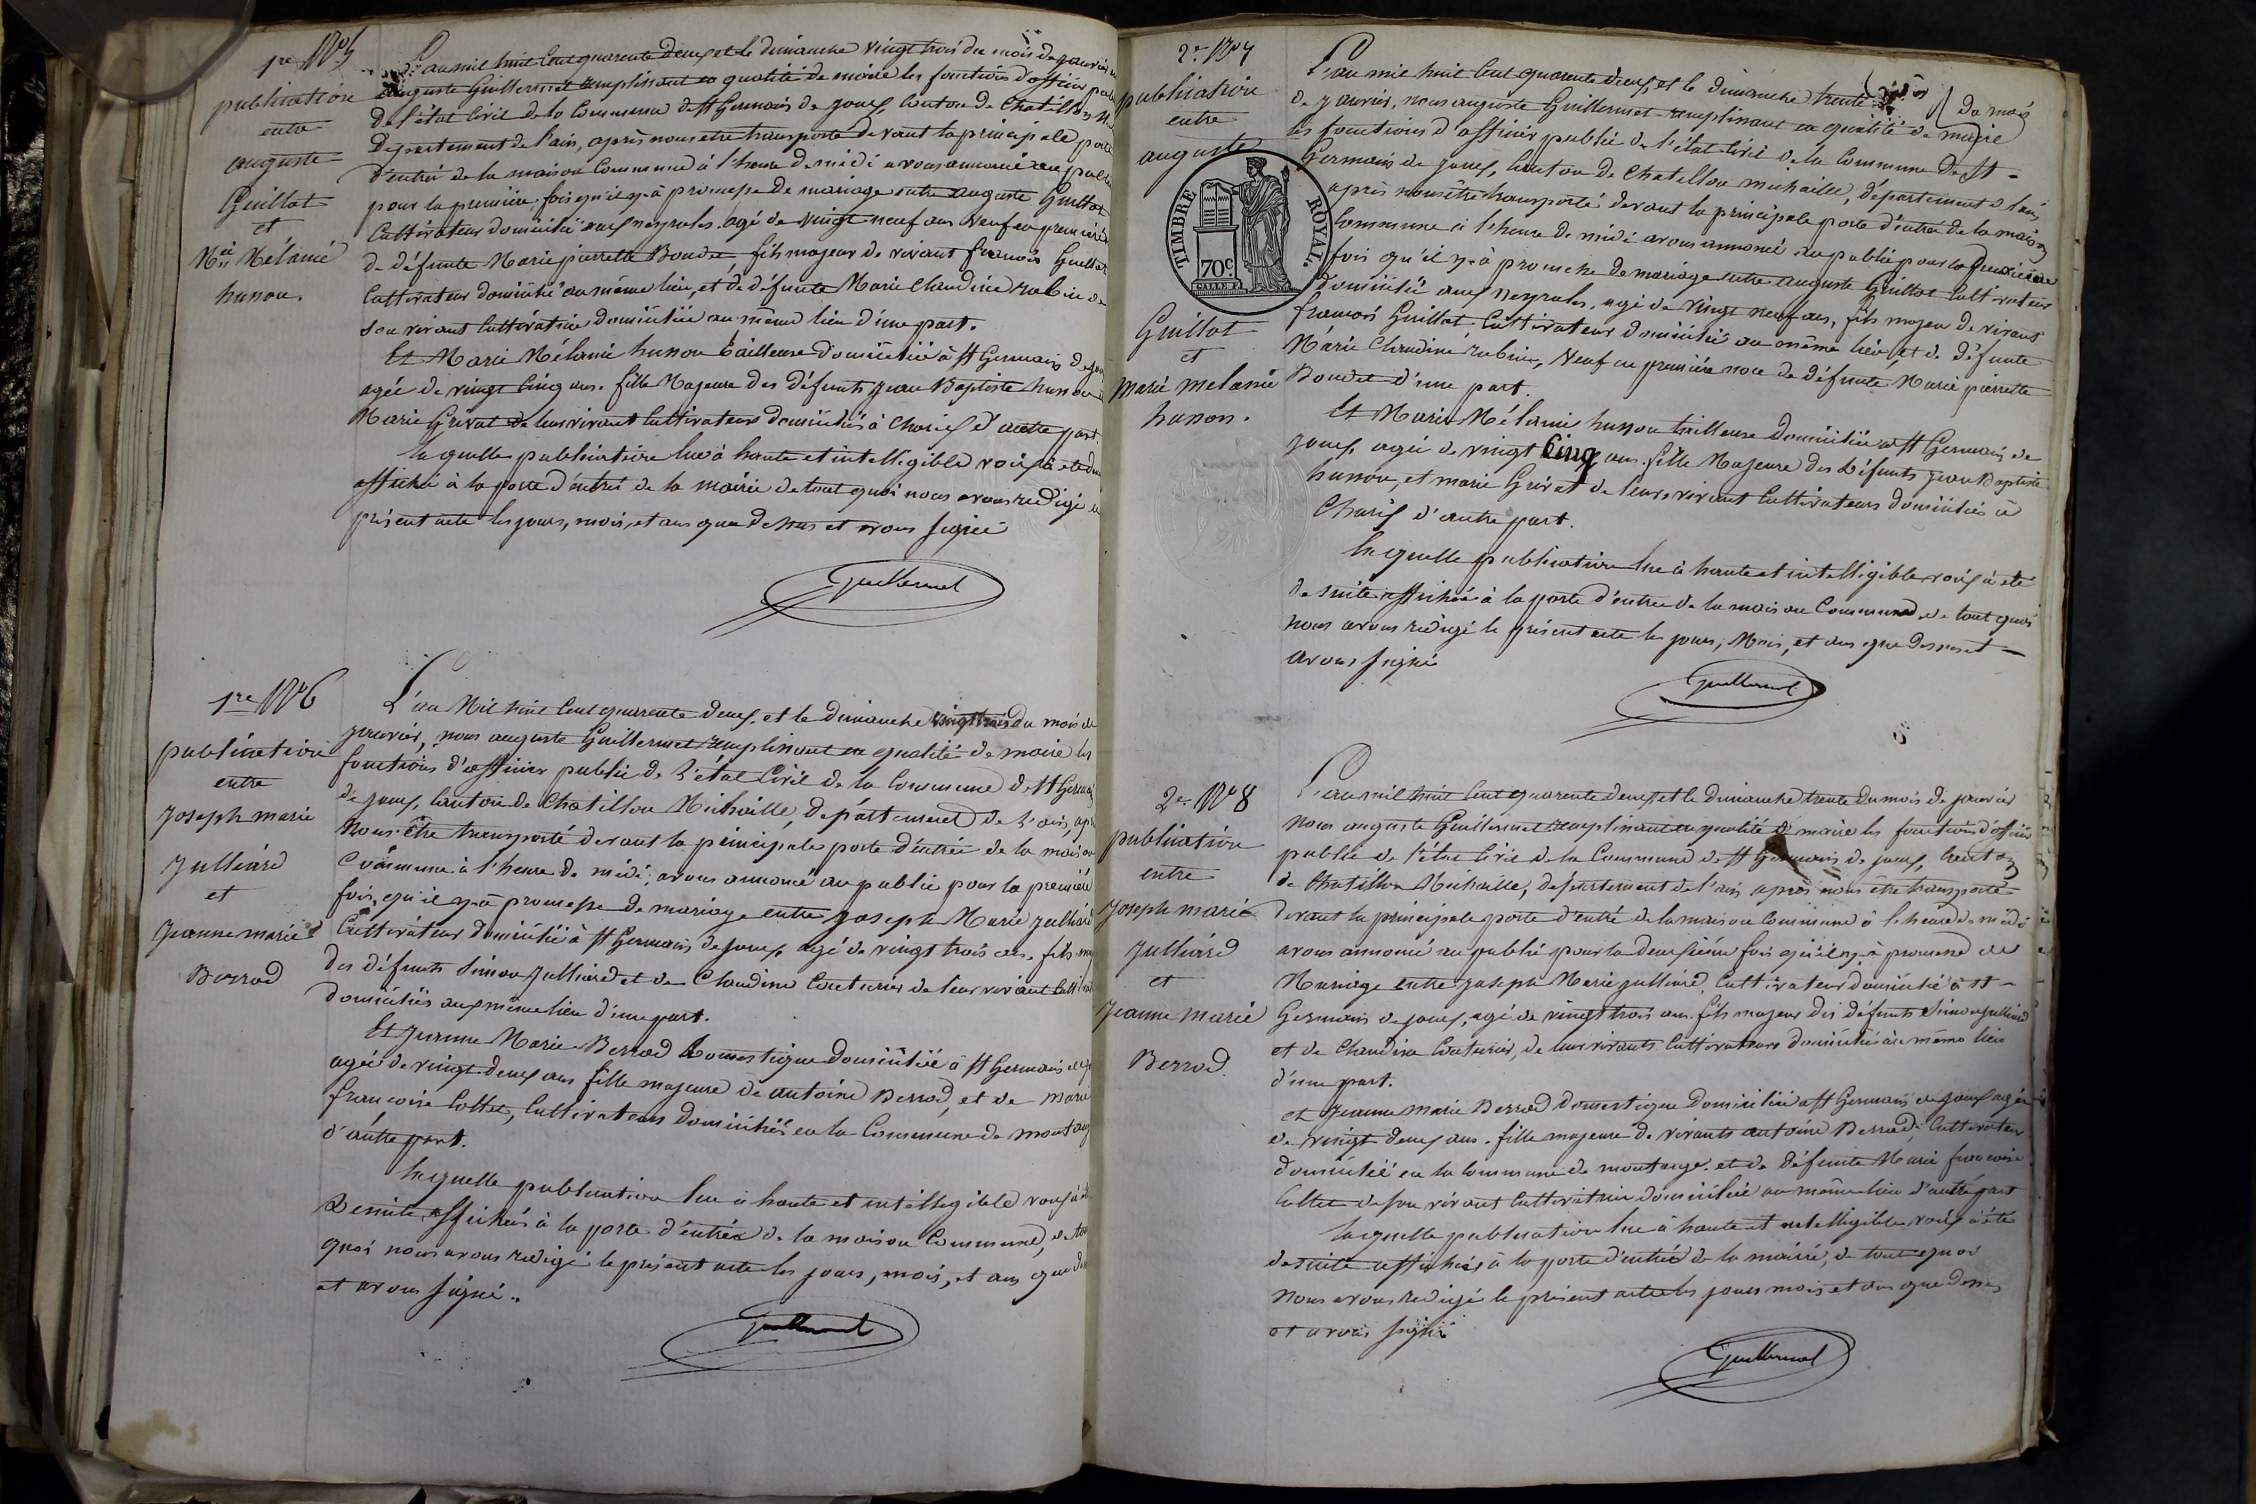 1re Nº 5
publication
entre
auguste
Guillot
et
Mie Mélanie
husson.
L'an mil huit cent quarante deux et le dimanche vingt trois du mois de janvier
auguste Guillermet remplissant en qualité de maire les fonctions d'officier
de l'état Civil de la Commune de St Germain de joux, Canton de Chatillon
département de l'ain, après nous etre transporté devant la principale porte
d'entrée de la maison Commune à l'heure de midi avons annoncé au public
pour la première fois qu'il y à promesse de mariage entre auguste Guillot
Cultivateur domicilié aux neyroles, agé de vingt neuf ans Veuf en premières
de défunte Marie pierrette Boudet fils majeur de vivant françois Guillot
Cultivateur domicilié au même lieu, et de défunte Marie Claudine rubin de
son vivant Cultivatrice domiciliée au même lieu d'une part.
Et Marie Mélanie husson tailleuse domiciliée à St Germain de joux
agée de vingt Cinq ans. fille Majeure des défunts jean Baptiste husson
Marie Grivat de leur vivant Cultivateurs domiciliés à Charix d'autre part.
laquelle publication lue à haute et intelligible voix à été de
affichée à la porte d'entrée de la mairie de tout quoi nous avons redigé le
présent acte les jours, mois, et ans que dessus et avons signé
Guillermet
1re Nº 6
publication
entre
Joseph marie
Julliard
et
Jeanne marie
Berrod
L'an Mil huit Cent quarante deux, et le dimanche vingt trois du mois de
janvier, nous auguste Guillermet remplissant en qualité de maire les
fonctions d'officier public de l'état Civil de la Commune de St Germain
de joux, Canton de Chatillon Michaille, département de l'ain, après
Nous être transporté devant la principale porte d'entrée de la maison
Commune à l'heure de midi, avons annoncé au public pour la première
fois, qu'il y à promesse de mariage entre joseph Marie julliard
Cultivateur domicilié à St Germain de joux, agé de vingt trois ans. fils
des défunts Simon Julliard et de Claudine Couturier de leur vivant
domiciliés aux même lieu d'une part.
Et Jeanne Marie Berrod domestique domiciliée à St Germain de
agée de vingt deux ans fille majeure de antoine Berrod, et de Marie
françoise Collet, Cultivateurs domiciliés en la Commune de montange
d'autre part.
laquelle publication lue à haute et intelligible voix à été
De suite affichée à la porte d'entrée de la maison Commune, de tout
quoi nous avons redigé le présent acte les jours, mois, et ans que
et avons signé.
Guillermet
2e Nº 7
publication
entre
auguste
TIMBRE ROYAL.
70c
Guillot
et
marie melanie
husson.
L'an mil huit Cent quarante deux, et le dimanche trente du mois
de janvier, nous auguste Guillermet remplissant en qualité de maire
les fonctions d'officier public de l'état Civil de la Commune de St
Germain de joux, Canton de Chatillon michaille, département de l'ain,
après nous être transporté devant la principale porte d'entrée de la maison
Commune à l'heure de midi avons annoncé au public pour la deuxième
fois qu'il y à promesse de mariage entre auguste Guillot Cultivateur
domicilié aux Neyroles, agé de vingt neuf ans, fils majeur de vivant
françois Guillot Cultivateur domicilié au même lieu, et de défunte
Marie Claudine rubin, Veuf en première noce de défunte Marie pierrette
Boudet d'une part.
Et Marie Mélanie husson tailleuse domiciliée à St Germain de
joux, agée de vingt Cinq ans. fille Majeure des défunts jean Baptiste
husson, et marie Grivat de leurs vivant Cultivateurs domiciliés à
Charix d'autre part.
laquelle publication lue à haute et intelligible voix à été
de suite affichée à la porte d'entrée de la maison Commune, de tout quoi
nous avons redigé le présent acte les jours, Mois, et ans que dessus et
avons signé
Guillermet
2e Nº 8
publication
entre
Joseph marie
Julliard
et
Jeanne marie
Berrod.
L'an mil huit Cent quarante deux, et le dimanche trente du mois de janvier
nous auguste Guillermet remplissant en qualité de maire les fonctions d'officier
public de l'état Civil de la Commune de St Germain de joux, Canton
de Chatillon Michaille, département de l'ain après nous être transporté
devant la principale porte d'entrée de la maison Commune à l'heure de midi
avons annoncé au public pour la deuxième fois qu'il y à promesse de
Mariage entre joseph Marie julliard, Cultivateur domicilié à St
Germain de joux, agé de vingt trois ans. fils majeur des défunts Simon julliard
et de Claudine Couturier, de leur vivants Cultivateurs domiciliés au même lieu
d'une part.
et jeanne marie Berrod domestique domiciliée à St Germain de joux agée
de vingt deux ans. fille majeure de vivants antoine Berrod, Cultivateur
domicilié en la Commune de montange. et de défunte Marie françoise
Collet de son vivant Cultivatrice domiciliée au même lieu d'autre part
laquelle publication lue à haute et intelligible voix à été
de suite affichée à la porte d'entrée de la mairie, de tout quoi
nous avons redigé le présent acte les jours mois et ans que dessus
et avons signé
Guillermet